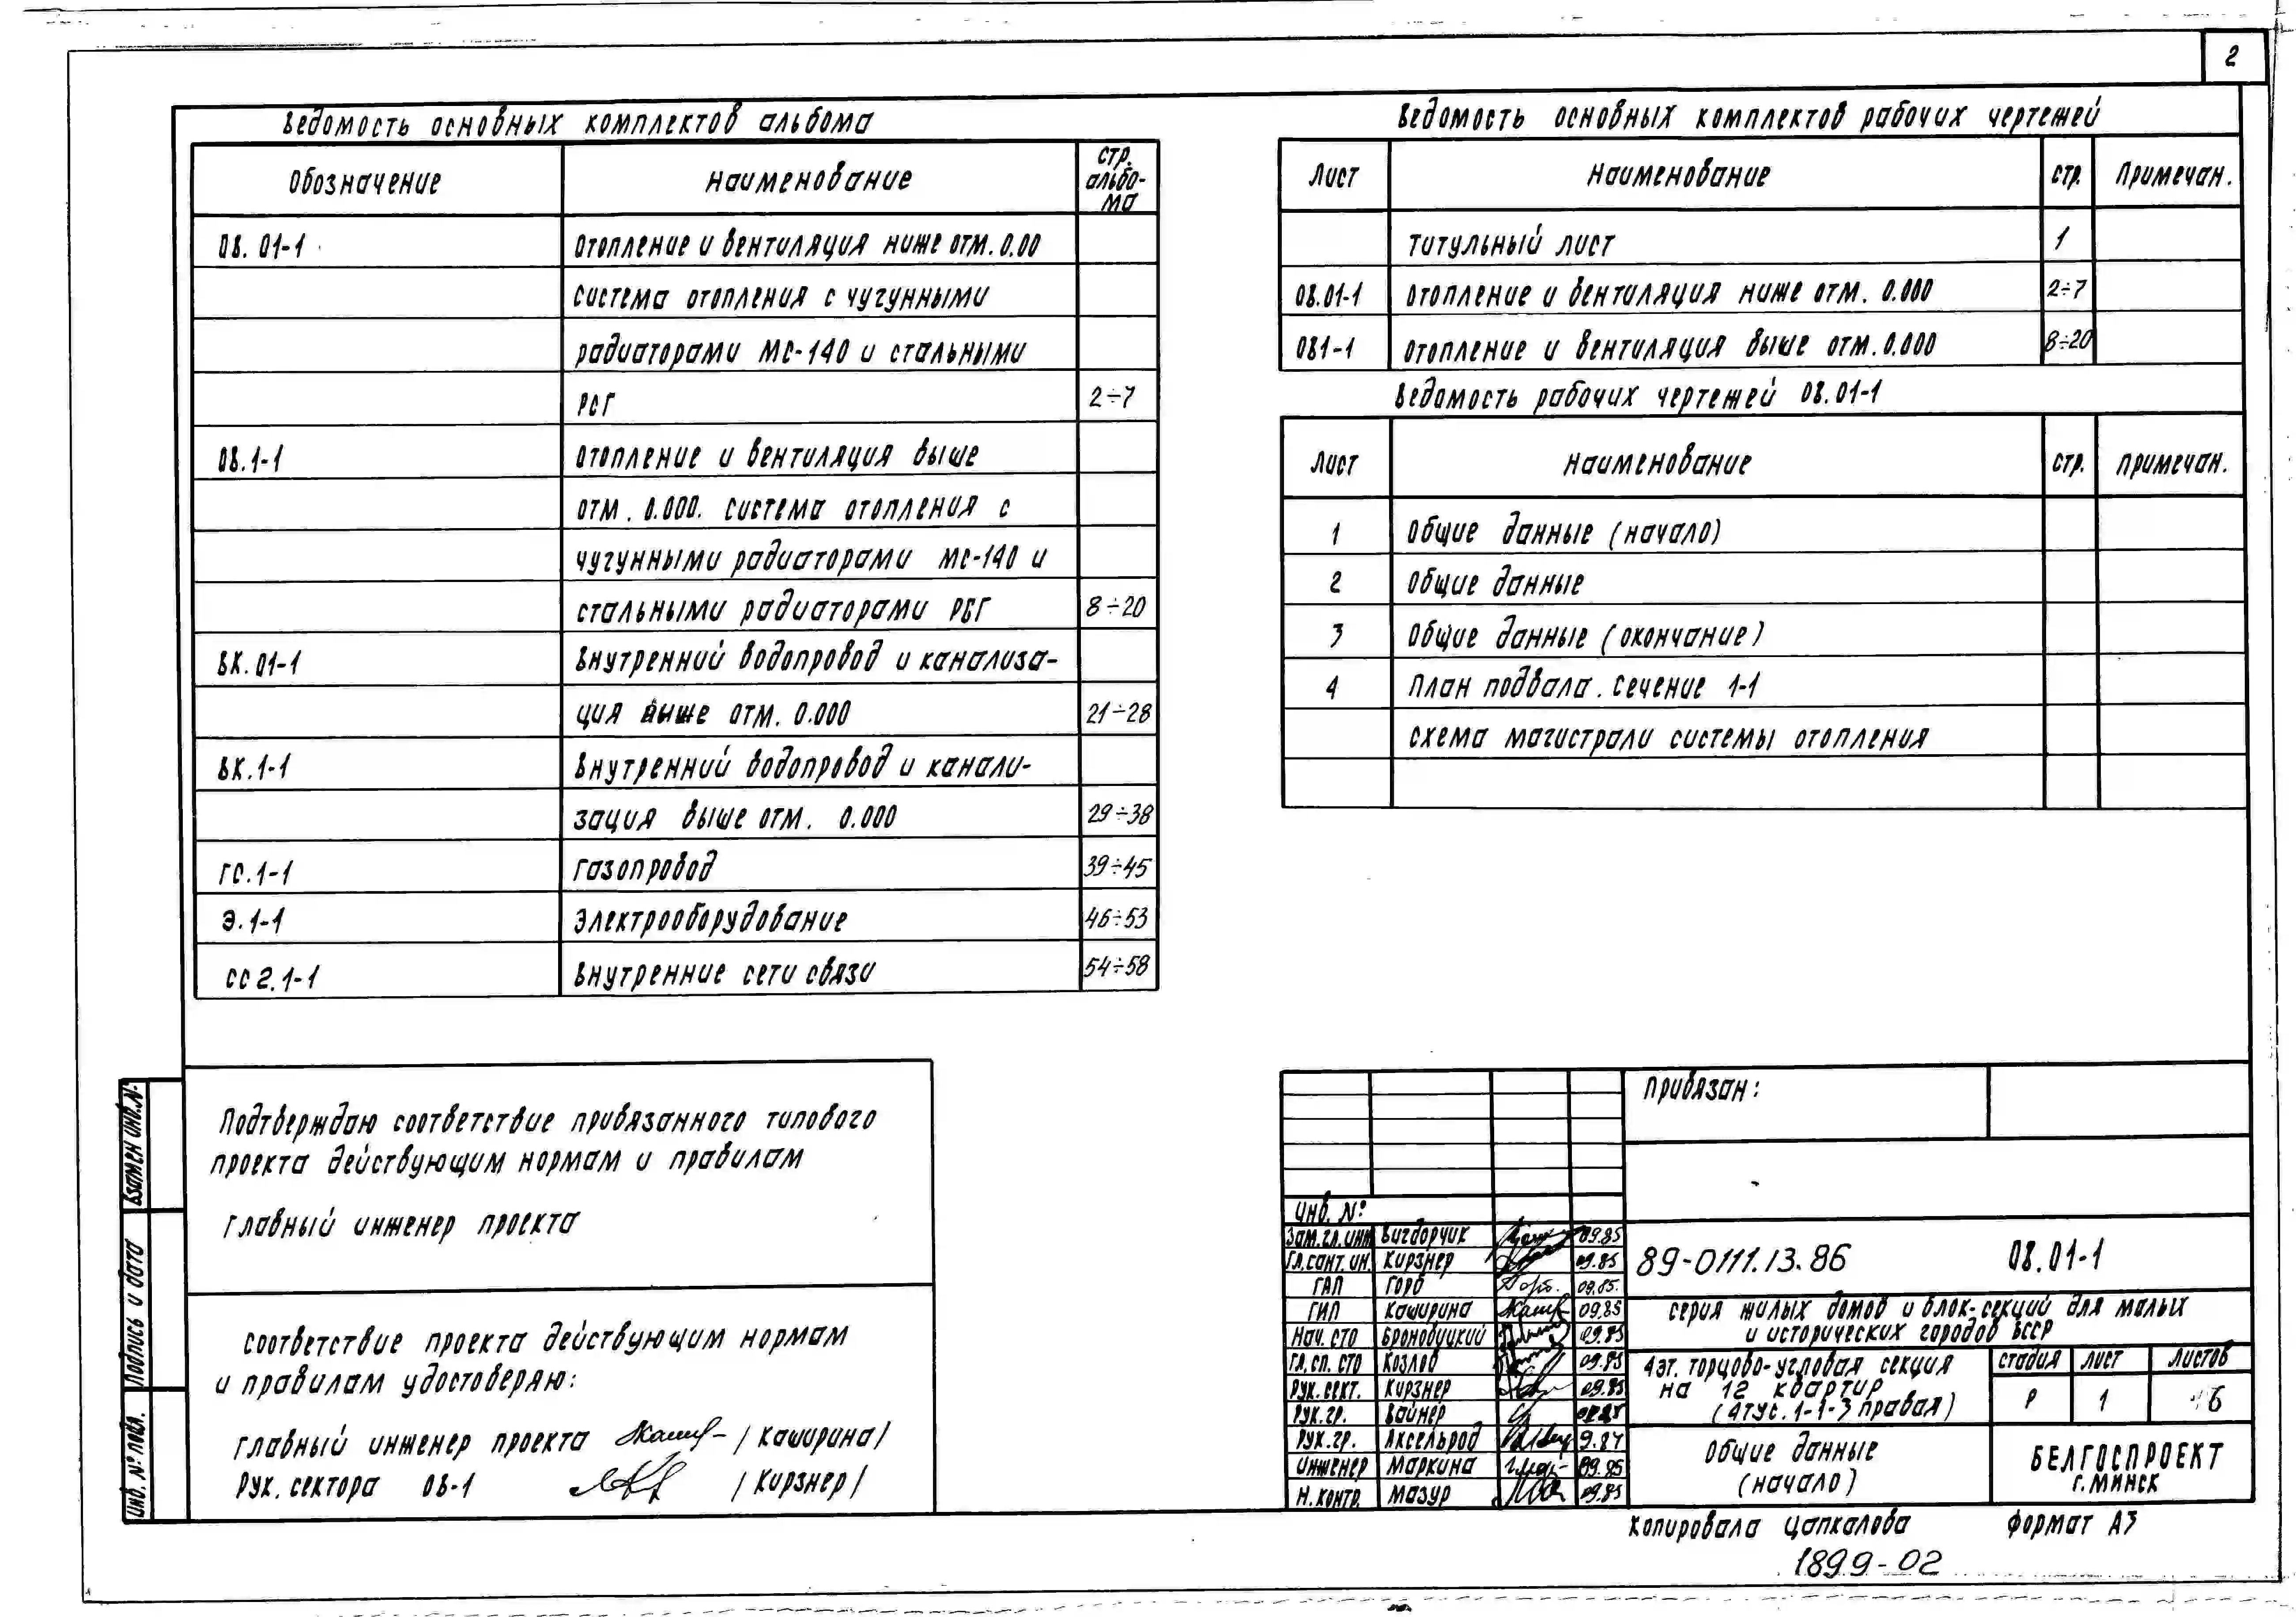 2
Ведомость основных комплектов альбома
Обозначение | Наименование | стр. альбо-ма
ОВ. 01-1 | Отопление и вентиляция ниже отм. 0.00
Система отопления с чугунными
радиаторами МС-140 и стальными
РСГ | 2÷7
ОВ.1-1 | Отопление и вентиляция выше
отм. 0.000. Система отопления с
чугунными радиаторами МС-140 и
стальными радиаторами РСГ | 8÷20
ВК.01-1 | Внутренний водопровод и канализа-
ция выше отм. 0.000 | 21÷28
ВК.1-1 | Внутренний водопровод и канали-
зация выше отм. 0.000 | 29÷38
ГС.1-1 | Газопровод | 39÷45
Э.1-1 | Электрооборудование | 46÷53
СС2.1-1 | Внутренние сети связи | 54÷58
Ведомость основных комплектов рабочих чертежей
Лист | Наименование | стр. | Примечан.
Титульный лист | 1
ОВ.01-1 | Отопление и вентиляция ниже отм. 0.000 | 2÷7
ОВ1-1 | Отопление и вентиляция выше отм. 0.000 | 8÷20
Ведомость рабочих чертежей ОВ.01-1
Лист | Наименование | стр. | примечан.
1 | Общие данные (начало)
2 | Общие данные
3 | Общие данные (окончание)
4 | План подвала. Сечение 1-1
Схема магистрали системы отопления
Подтверждаю соответствие привязанного типового
проекта действующим нормам и правилам
Главный инженер проекта
Соответствие проекта действующим нормам
и правилам удостоверяю:
Главный инженер проекта /Каширина/
Рук. сектора ОВ-1 /Кирзнер/
Взамен инв.№
Подпись и дата
Инв. № подл.
Привязан:
Инв. №
Зам.гл.инж | Вигдорчик | 09.85
Гл.сант.ин. | Кирзнер | 09.85
ГАП | Горб | 09.85.
ГИП | Каширина | 09.85
Нач. СТО | Броновицкий | 09.85
Гл.сп. СТО | Козлов | 09.85
Рук.сект. | Кирзнер | 09.85
Рук.гр. | Вайнер | 09.85
Рук.гр. | Аксельрод | 9.84
Инженер | Маркина | 09.85
Н.контр. | Мазур | 09.85
89-0111.13.86 ОВ.01-1
Серия жилых домов и блок-секций для малых
и исторических городов БССР
4эт. торцово-угловая секция
на 12 квартир
(4ТУС.1-1-3 правая)
Стадия | Лист | Листов
Р | 1 | 6
Общие данные
(начало)
БЕЛГОСПРОЕКТ
г. МИНСК
Копировала Цапкалова Формат А3
1899-02